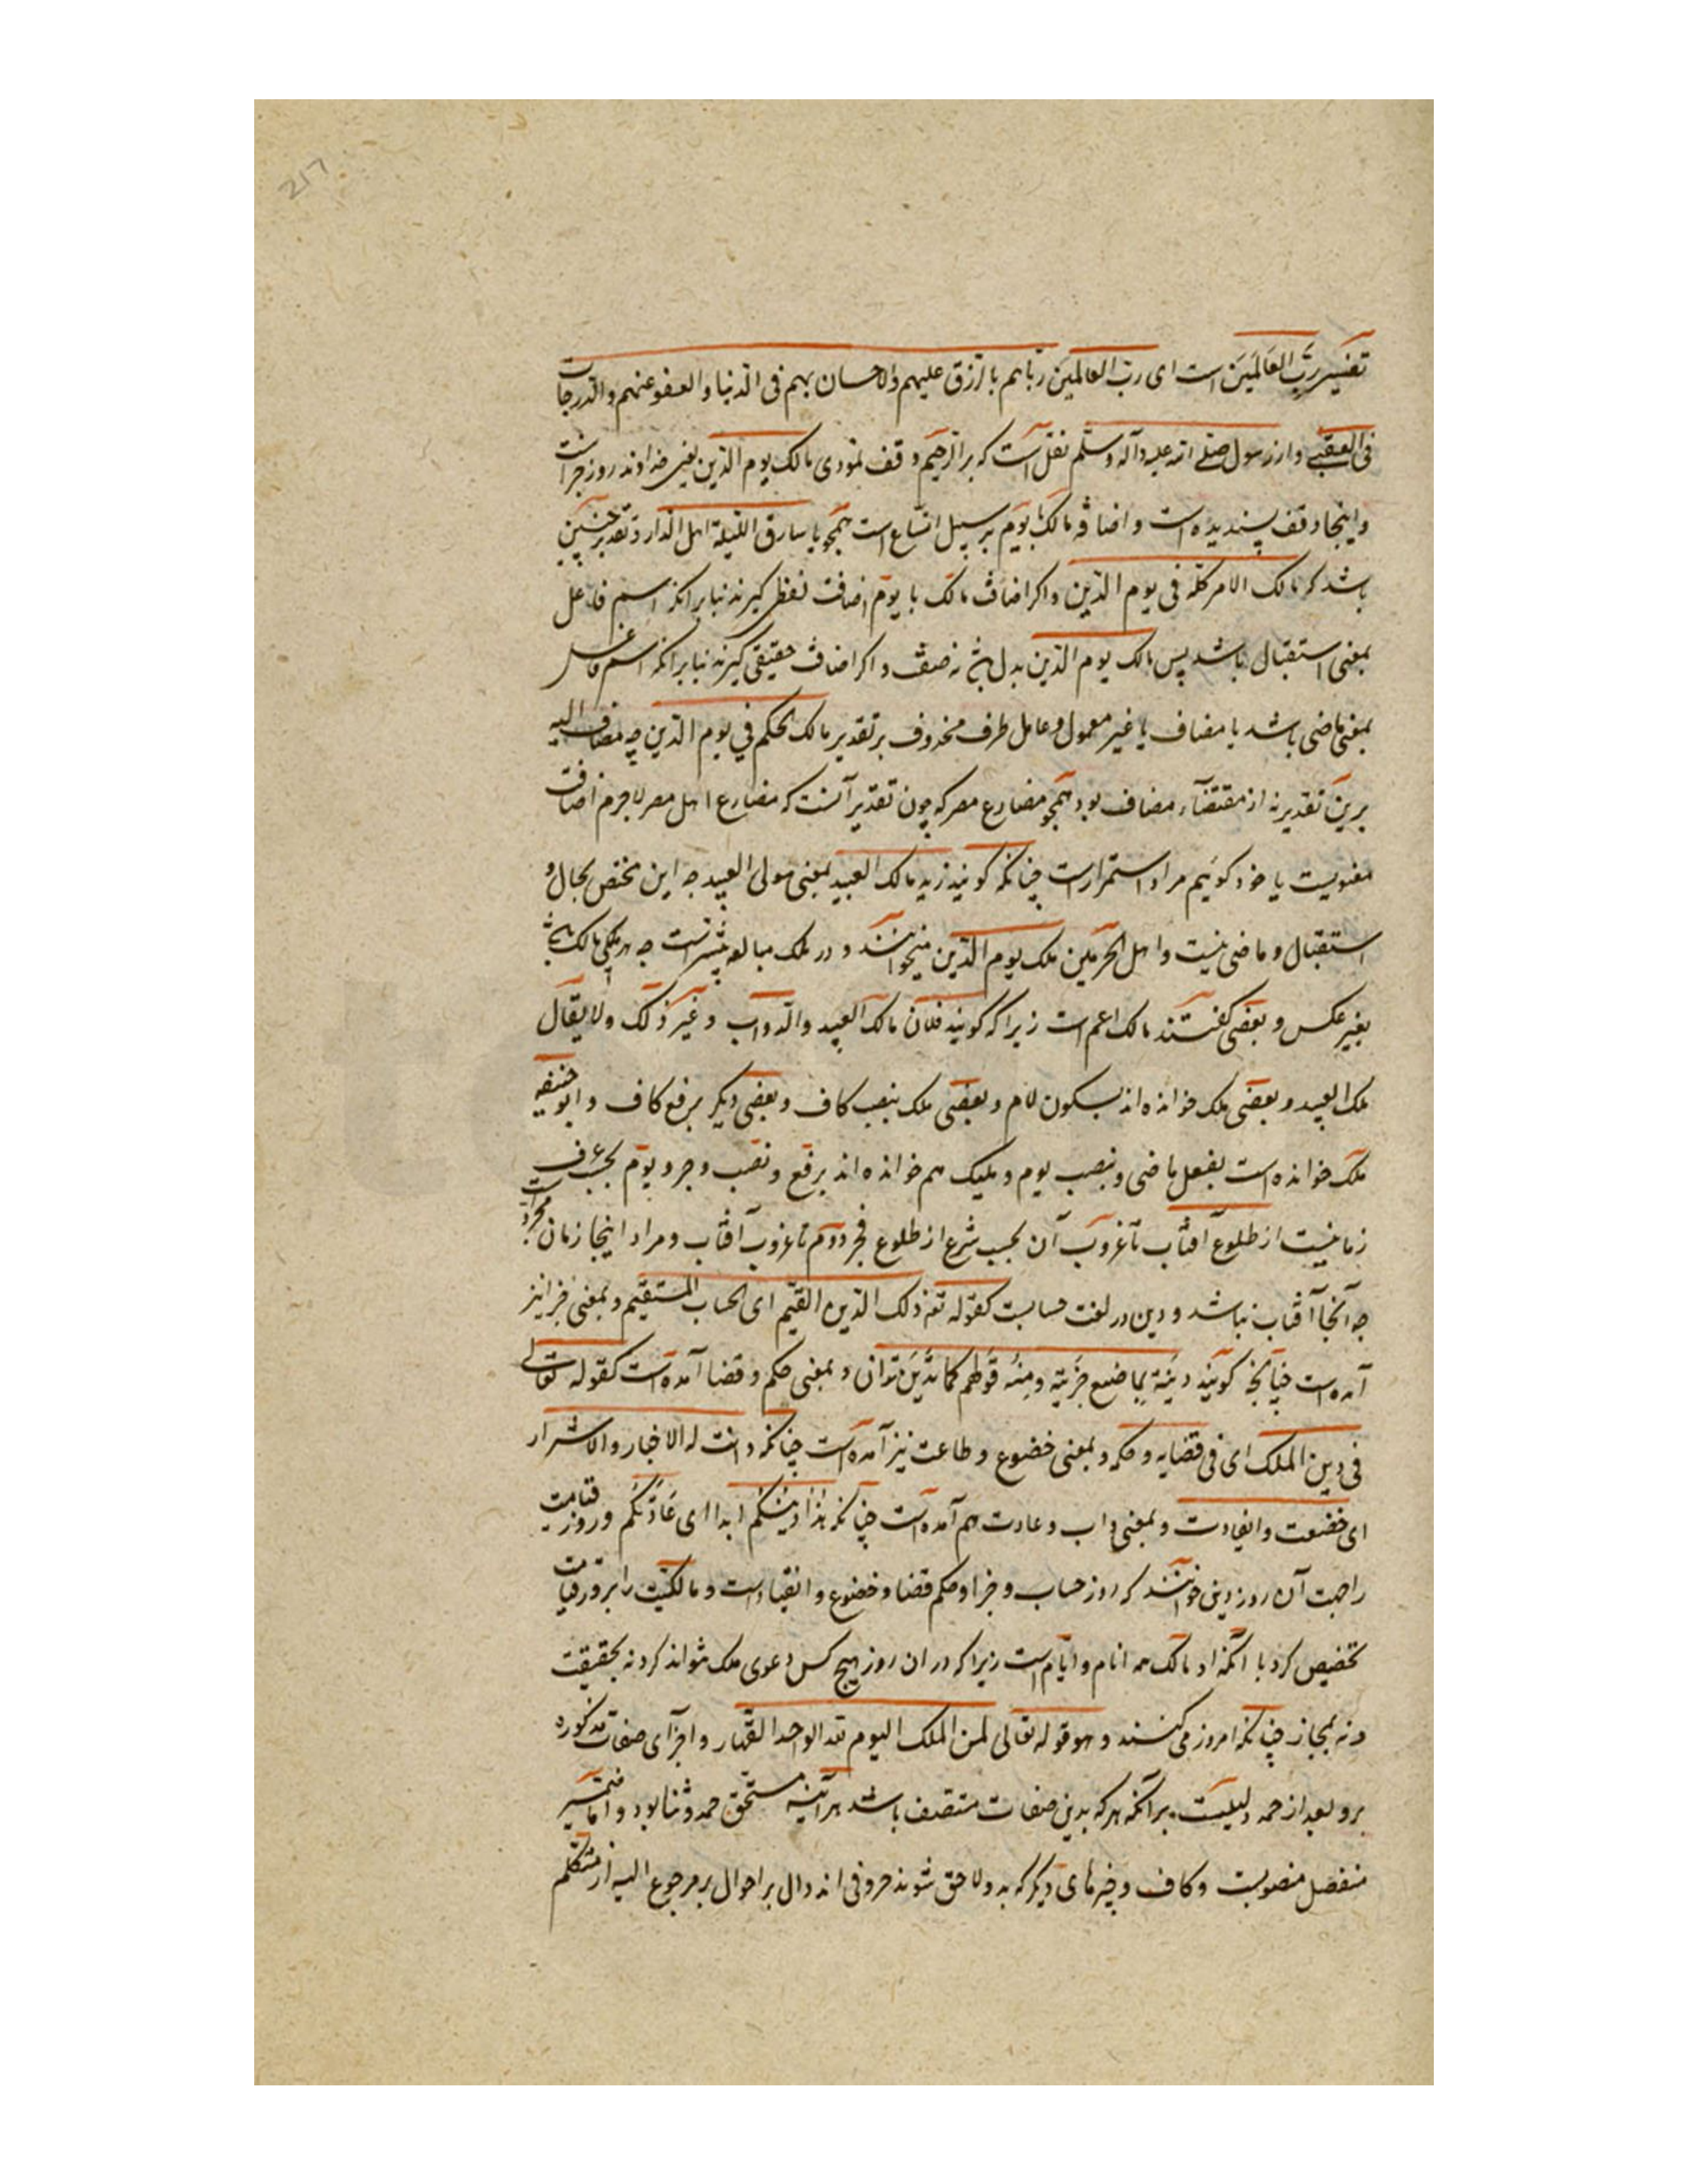 تفسیر رَبّ العَالَمینَ است ای ربّ العالمینَ رباهم بالرّزق علیهم والاحسان بهم فی الدّنیا والعفو عنهم والدّرجات
فی العقبی و از رسول صلی الله علیه وآله وسلّم نقل است که بر الرّحیم وقف نمودی مالک یوم الدّین یعنی خداوند روز جزاست
و اینجا وقف پسندیده است و اضافه مالک با یوم بر سبیل اتساع است همچو یا سارق اللیلة اهل الدار و تقدیر چنین
باشد که مالک الامر کلّه فی یوم الدّین و اکر اضافت مالک با یوم اضافت لفظی کیرند بنابر انکه اسم فاعل
بمعنی استقبال باشد پس مالک یوم الدّین بدل نه صفت و اکر اضافت حقیقی کیرند بنابر انکه اسم فاعل
بمعنی ماضی باشد یا مضاف با غیر معمول و عامل ظرف محذوف بر تقدیر مالک الحکم فی یوم الدّین چه مضاف الیه
برین تقدیر نه از مقتضآء مضاف بود همچو مضارع مصر که چون تقدیر آنست که مضارع اهل مصر لاجرم اضافت
معنویست یا خود کوئیم مراد استمرار است چنانکه کویند زید مالک العبید بمعنی مولی العبید چه این مختص بحال و
استقبال و ماضی نیست و اهل الحرمین ملک یوم الدّین میخوانند و در ملک مبالغه بیشتر است چه هر ملکی مالک
بغیر عکس و بعضی کفتند مالک اعم است زیرا که کویند فلان مالک العبید والدّواب و غیر ذلک ولا یقال
ملک العبید و بعضی ملک خوانده اند بسکون لام و بعضی ملک بنصب کاف و بعضی دیکر برفع کاف و ابو حنیفه
ملک خوانده است بفعل ماضی و بنصب یوم و ملیک هم خوانده اند برفع و نصب و جر و یوم بحسب عرف
زمانیست از طلوع آفتاب تا غروب آن بحسب شرع از طلوع فجر دوم تا غروب آفتاب و مراد اینجا زمان مجرّد است
چه آنجا آفتاب نباشد و دین در لغت حسابست کقوله تع ذلک الدّین القیّم ای الحساب المستقیم و بمعنی جزا نیز
آمده است چنانچه کویند دینَهُ بما صنع جزیته ومنه قولهم کما تدین تدان و بمعنی حکم و قضا آمده است کقوله تعالی
فی دین الملک ای فی قضایه و حکمه و بمعنی خضوع و طاعت نیز آمده است چنانکه دانت له الاخیار والاشرار
ای خضعت وانقادت و بمعنی داب و عادت هم آمده است چنانکه هذا دینکم ابدا ای عادتکم و روز قیامت
را جهت آن روز دین خوانند که روز حساب و جزا و حکم قضا و خضوع و انقیاد است و مالکیّت را بروز قیامت
تخصیص کرد با آنکه او مالک همه انام و ایّام است زیرا که در ان روز هیچ کس دعوی ملک نتواند کرد نه بحقیقت
و نه بمجاز چنانکه امروز می کنند و هو قوله تعالی لمن الملک الیوم لله الواحد القهّار و اجرآی صفات مذکوره
برو بعد از حمد دلیلیست برآنکه هر که بدین صفات متصف باشد هرآینه مستحق حمد و ثنا بود و ایّا ضمیر
منفصل منصوبست و کاف و چیزهای دیکر که بدو لاحق شوند حروفی اند دال بر احوال بر مرجوع الیه از متکلم